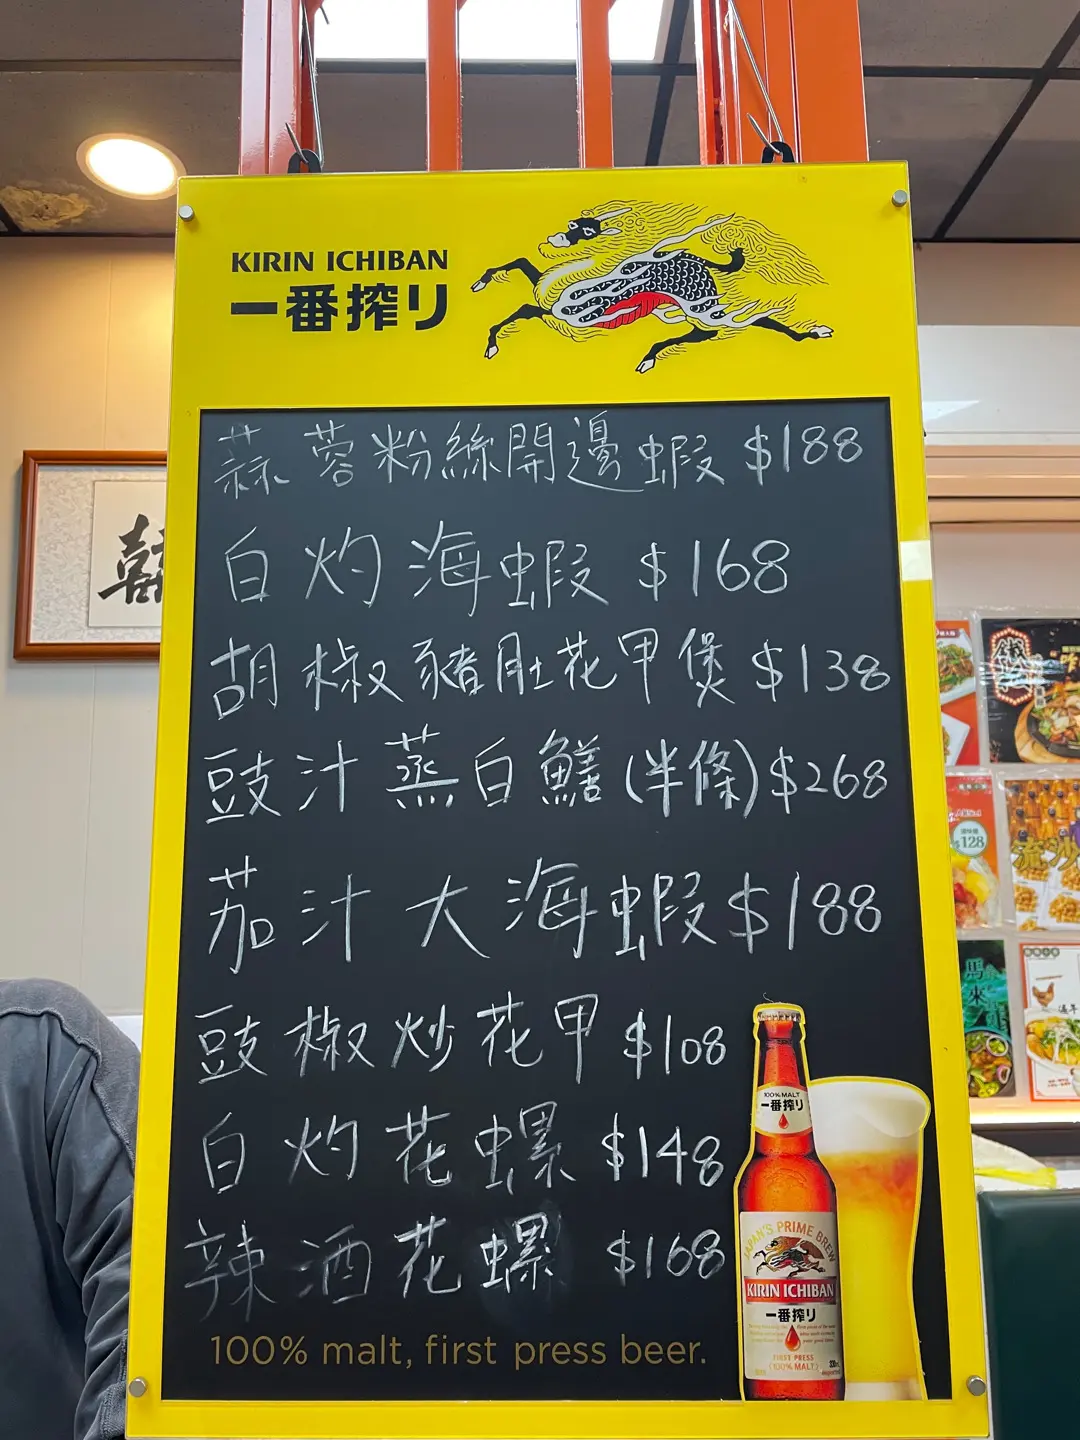 KIRIN ICHIBAN
一番搾り
蒜蓉粉絲開邊蝦 $188
白灼海蝦 $168
胡椒豬肚花甲煲 $138
豉汁蒸白鱔(半條) $268
茄汁大海蝦 $188
豉椒炒花甲 $108
白灼花螺 $148
辣酒花螺 $168
100% malt, first press beer.
100% MALT
一番搾り
JAPAN'S PRIME BREW
KIRIN ICHIBAN
一番搾り
FIRST PRESS
(100% MALT)
囍
128
流沙
馬來